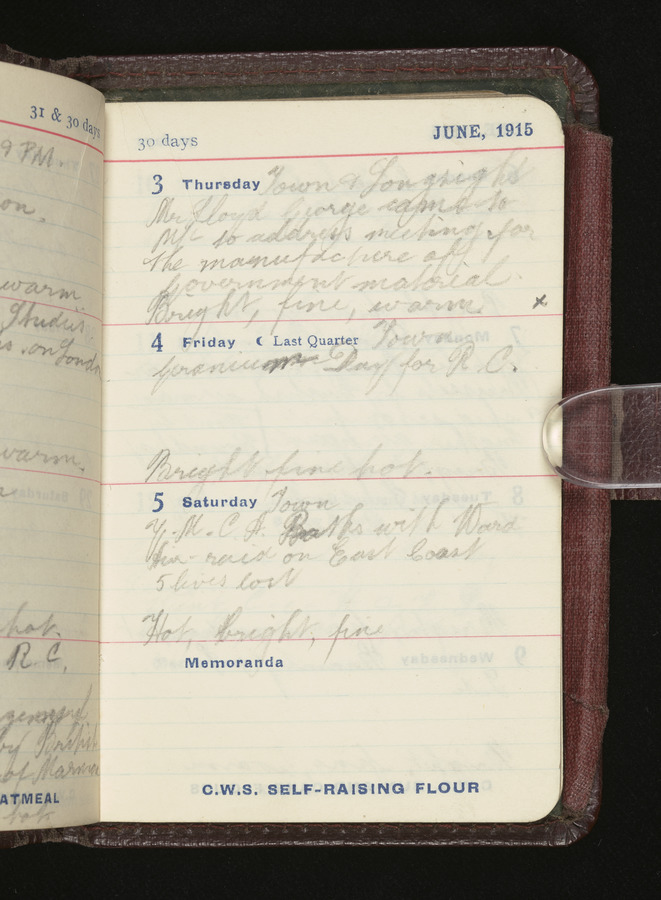 31 & 30 days
9 PM.
on.
warm
Studies
on London
warm.
hot.
R C,
by British
of Marne
ATMEAL
hot
30 days JUNE, 1915
3 Thursday Town & Longsight
Mr Lloyd George came to
M/c to address meeting for
the manufacture of
Government material
Bright, fine, warm. x
4 Friday ☾ Last Quarter Town
Geranium Day for R. C.
Bright fine hot.
5 Saturday Town
Y. M. C. A. Baths with Ward
Air-raid on East Coast
5 lives lost
Hot, bright, fine
Memoranda
C.W.S. SELF-RAISING FLOUR